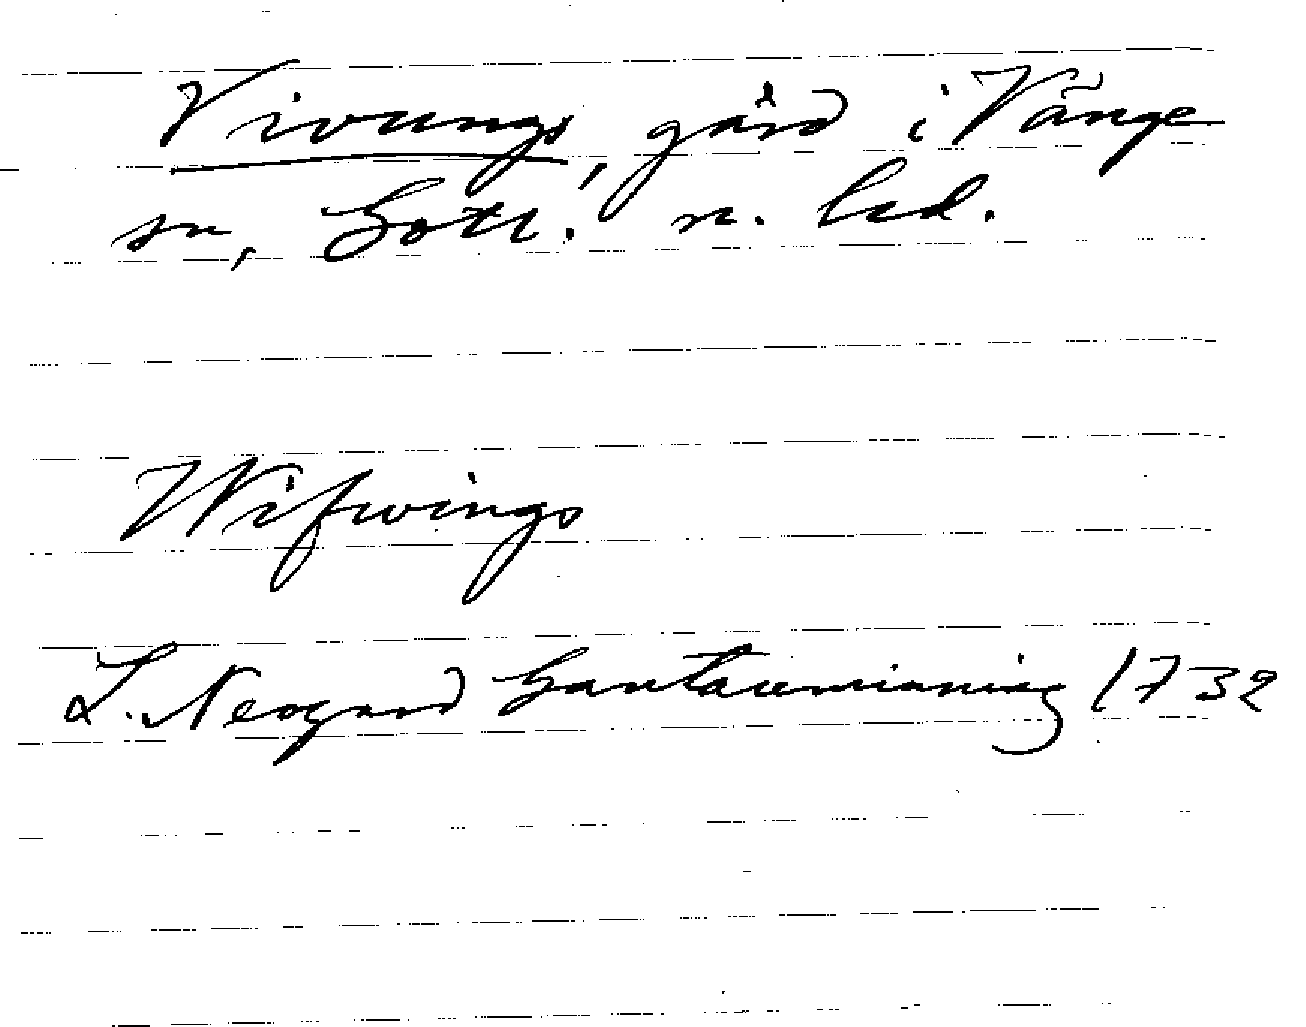 Vivungs, gård i Vänge
sn, Gotl. n. hd.
Wifwings
L. Neogard Gautauminning 1732